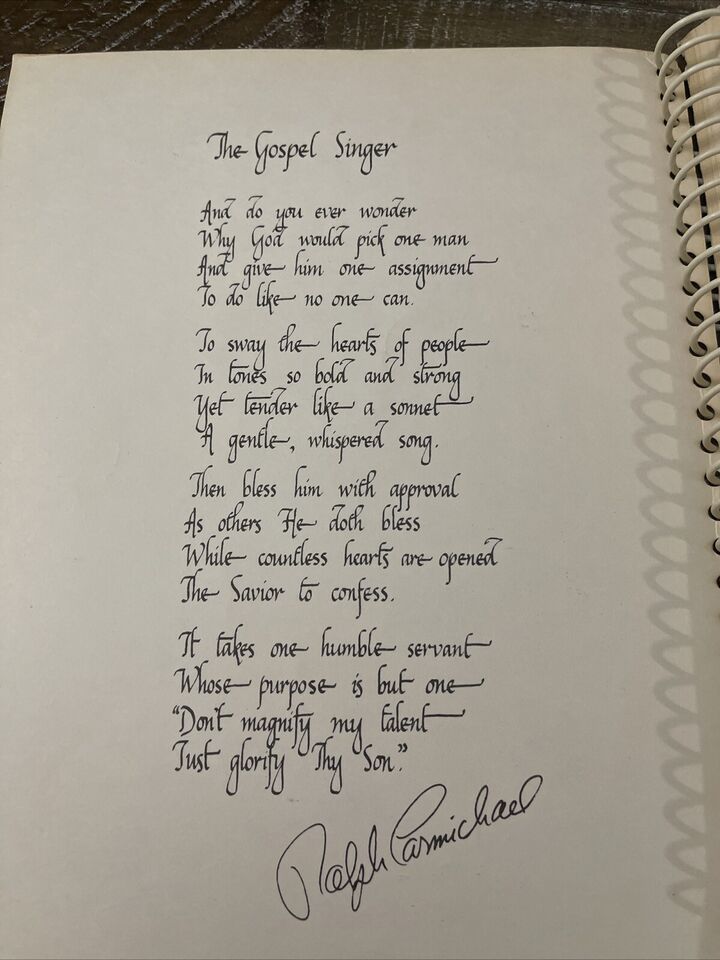 The Gospel Singer
And do you ever wonder
Why God would pick one man
And give him one assignment
To do like no one can.
To sway the hearts of people
In tones so bold and strong
Yet tender like a sonnet
A gentle, whispered song.
Then bless him with approval
As others He doth bless
While countless hearts are opened
The Savior to confess.
It takes one humble servant
Whose purpose is but one
“Don't magnify my talent
Just glorify Thy Son.”
Ralph Carmichael